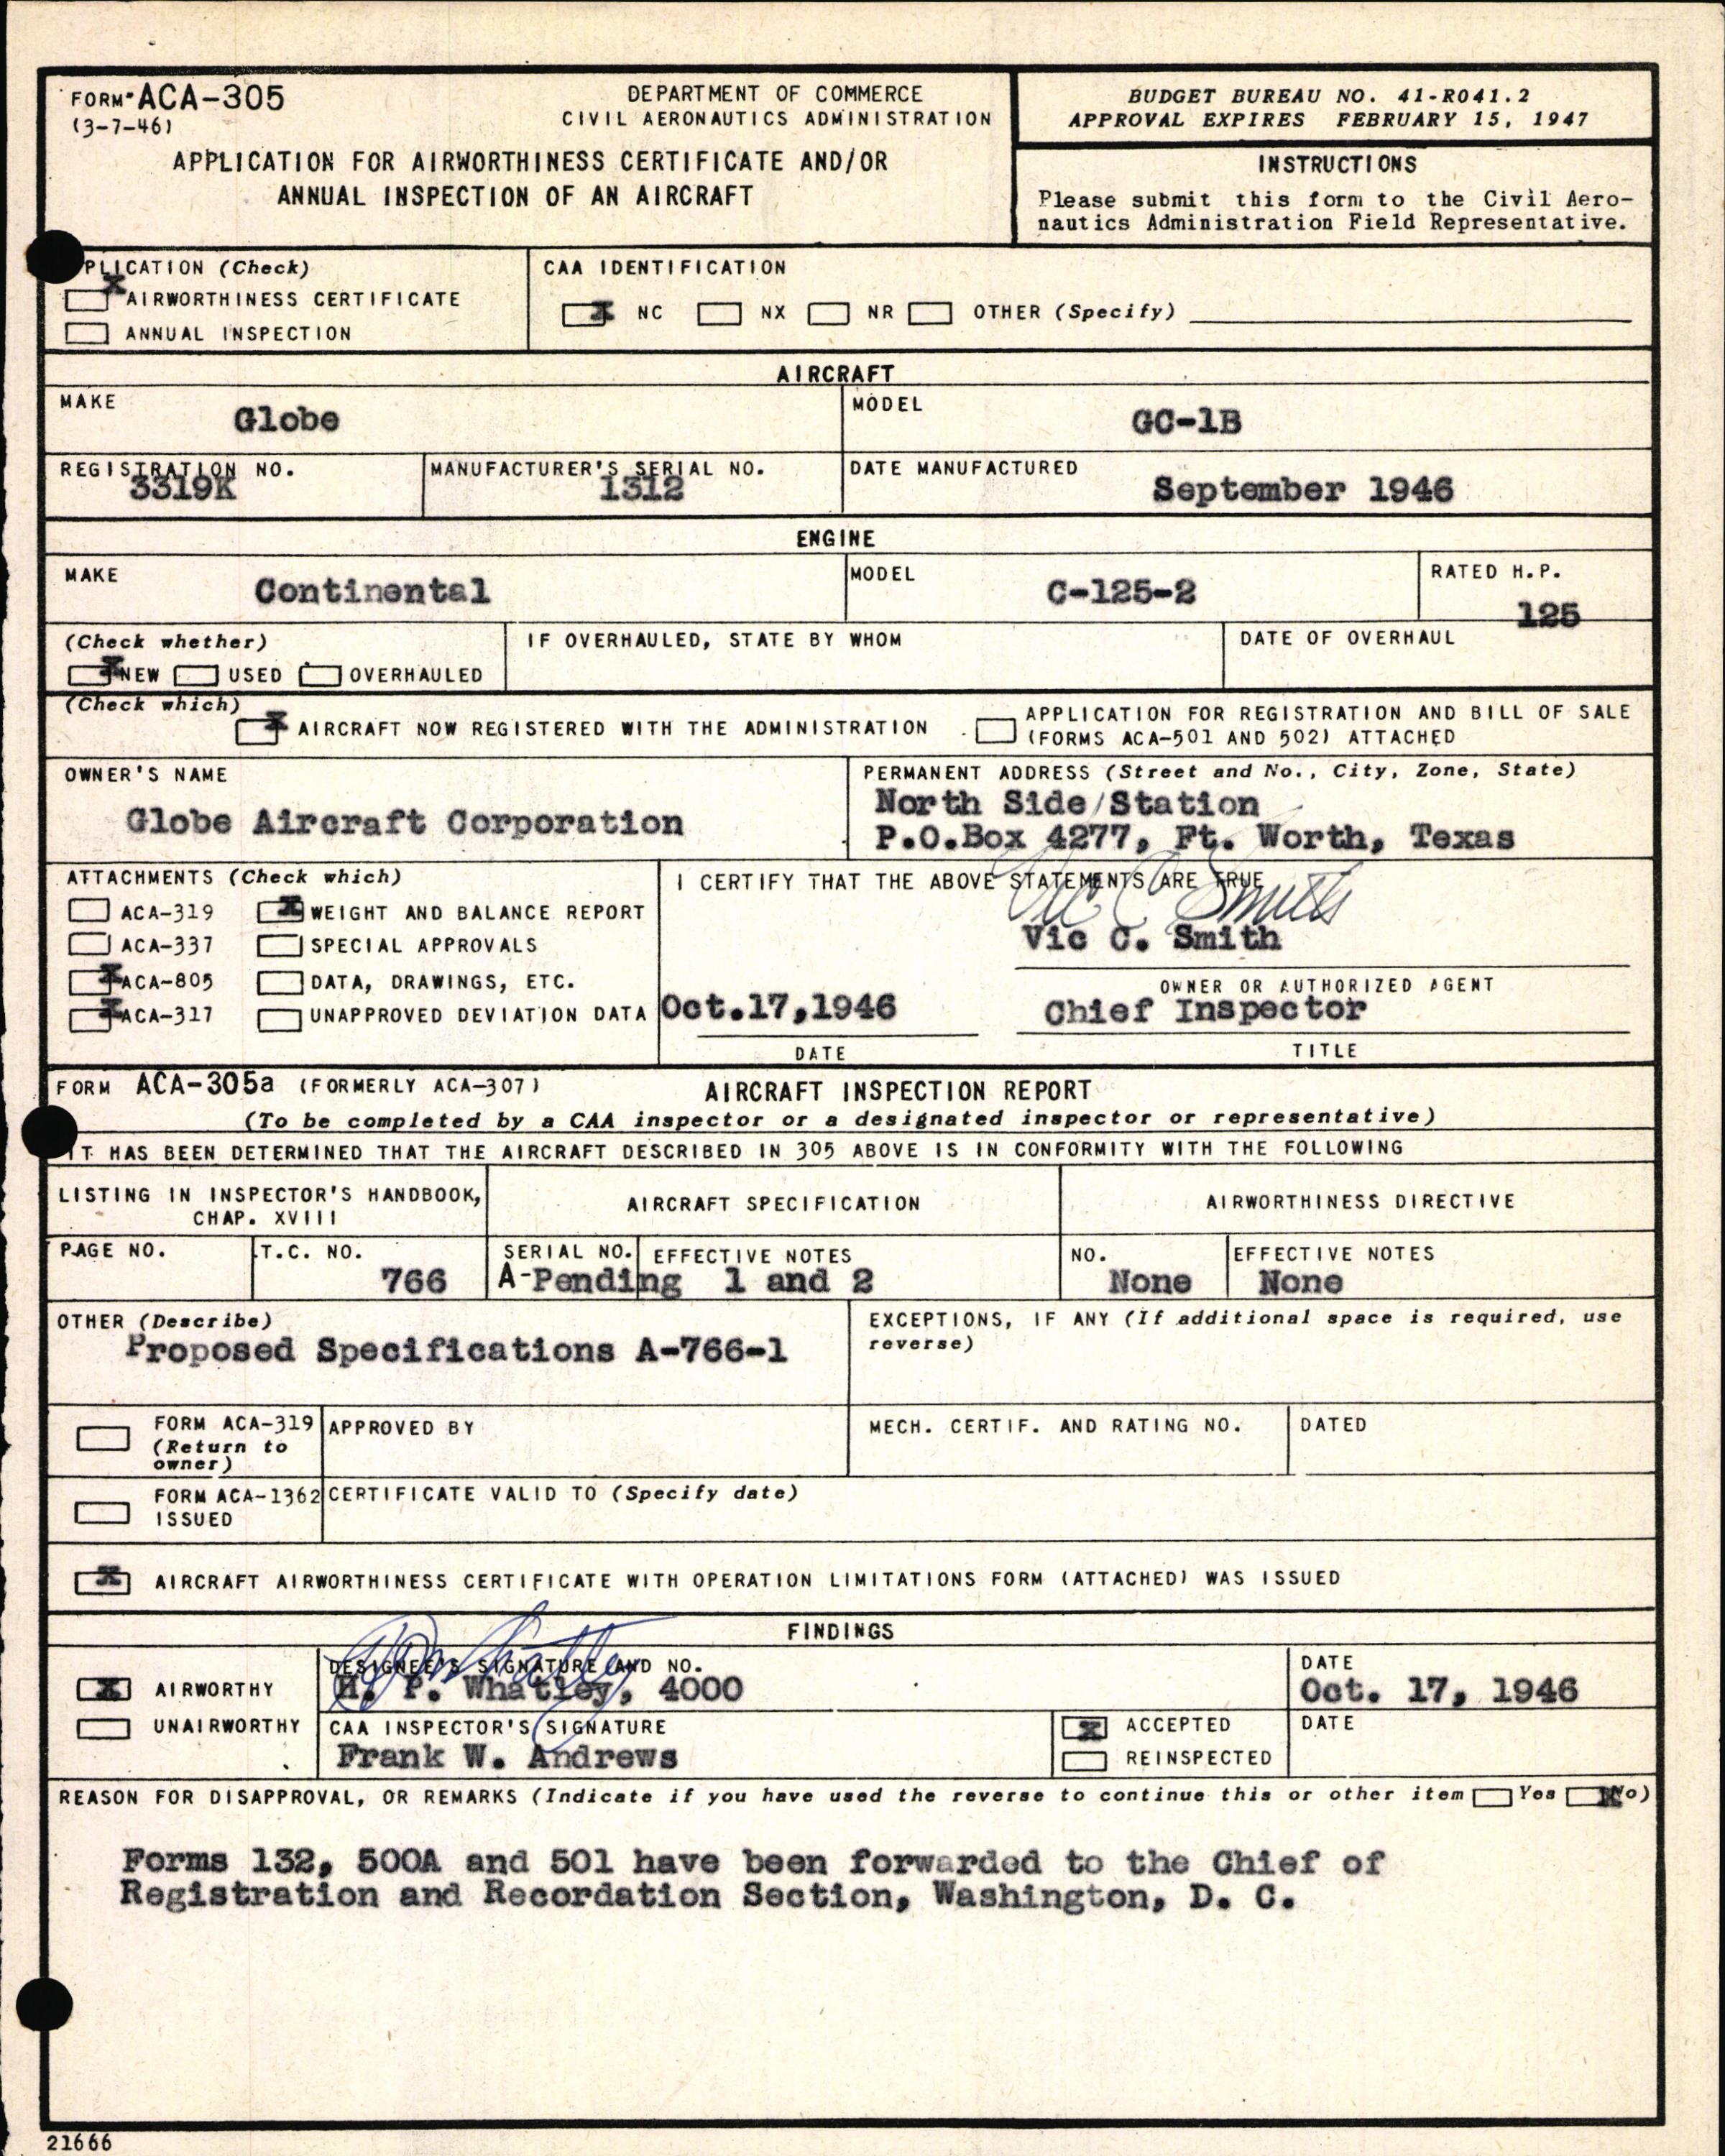 FORM ACA-305
(3-7-46)
DEPARTMENT OF COMMERCE
CIVIL AERONAUTICS ADMINISTRATION
APPLICATION FOR AIRWORTHINESS CERTIFICATE AND/OR
ANNUAL INSPECTION OF AN AIRCRAFT
BUDGET BUREAU NO. 41-R041.2
APPROVAL EXPIRES FEBRUARY 15, 1947
INSTRUCTIONS
Please submit this form to the Civil Aero-
nautics Administration Field Representative.
PLICATION (Check)
X AIRWORTHINESS CERTIFICATE
ANNUAL INSPECTION
CAA IDENTIFICATION
X NC NX NR OTHER (Specify)
AIRCRAFT
MAKE
Globe
MODEL
GC-1B
REGISTRATION NO.
3319K
MANUFACTURER'S SERIAL NO.
1312
DATE MANUFACTURED
September 1946
ENGINE
MAKE
Continental
MODEL
C-125-2
RATED H.P.
125
(Check whether)
X NEW USED OVERHAULED
IF OVERHAULED, STATE BY WHOM
DATE OF OVERHAUL
(Check which)
X AIRCRAFT NOW REGISTERED WITH THE ADMINISTRATION
APPLICATION FOR REGISTRATION AND BILL OF SALE
(FORMS ACA-501 AND 502) ATTACHED
OWNER'S NAME
Globe Aircraft Corporation
PERMANENT ADDRESS (Street and No., City, Zone, State)
North Side Station
P.O.Box 4277, Ft. Worth, Texas
ATTACHMENTS (Check which)
ACA-319 X WEIGHT AND BALANCE REPORT
ACA-337 SPECIAL APPROVALS
X ACA-805 DATA, DRAWINGS, ETC.
X ACA-317 UNAPPROVED DEVIATION DATA
I CERTIFY THAT THE ABOVE STATEMENTS ARE TRUE
Vic C Smith
Vic C. Smith
OWNER OR AUTHORIZED AGENT
Oct.17,1946
DATE
Chief Inspector
TITLE
FORM ACA-305a (FORMERLY ACA-307) AIRCRAFT INSPECTION REPORT
(To be completed by a CAA inspector or a designated inspector or representative)
IT HAS BEEN DETERMINED THAT THE AIRCRAFT DESCRIBED IN 305 ABOVE IS IN CONFORMITY WITH THE FOLLOWING
LISTING IN INSPECTOR'S HANDBOOK,
CHAP. XVIII
AIRCRAFT SPECIFICATION
AIRWORTHINESS DIRECTIVE
PAGE NO.
T.C. NO.
766
SERIAL NO. EFFECTIVE NOTES
A-Pending 1 and 2
NO.
None
EFFECTIVE NOTES
None
OTHER (Describe)
Proposed Specifications A-766-1
EXCEPTIONS, IF ANY (If additional space is required, use
reverse)
FORM ACA-319
(Return to
owner)
APPROVED BY
MECH. CERTIF. AND RATING NO.
DATED
FORM ACA-1362
ISSUED
CERTIFICATE VALID TO (Specify date)
X AIRCRAFT AIRWORTHINESS CERTIFICATE WITH OPERATION LIMITATIONS FORM (ATTACHED) WAS ISSUED
FINDINGS
X AIRWORTHY
UNAIRWORTHY
DESIGNEE'S SIGNATURE AND NO.
H. P. Whatley, 4000
DATE
Oct. 17, 1946
CAA INSPECTOR'S SIGNATURE
Frank W. Andrews
X ACCEPTED
REINSPECTED
DATE
REASON FOR DISAPPROVAL, OR REMARKS (Indicate if you have used the reverse to continue this or other item Yes X No)
Forms 132, 500A and 501 have been forwarded to the Chief of
Registration and Recordation Section, Washington, D. C.
21666